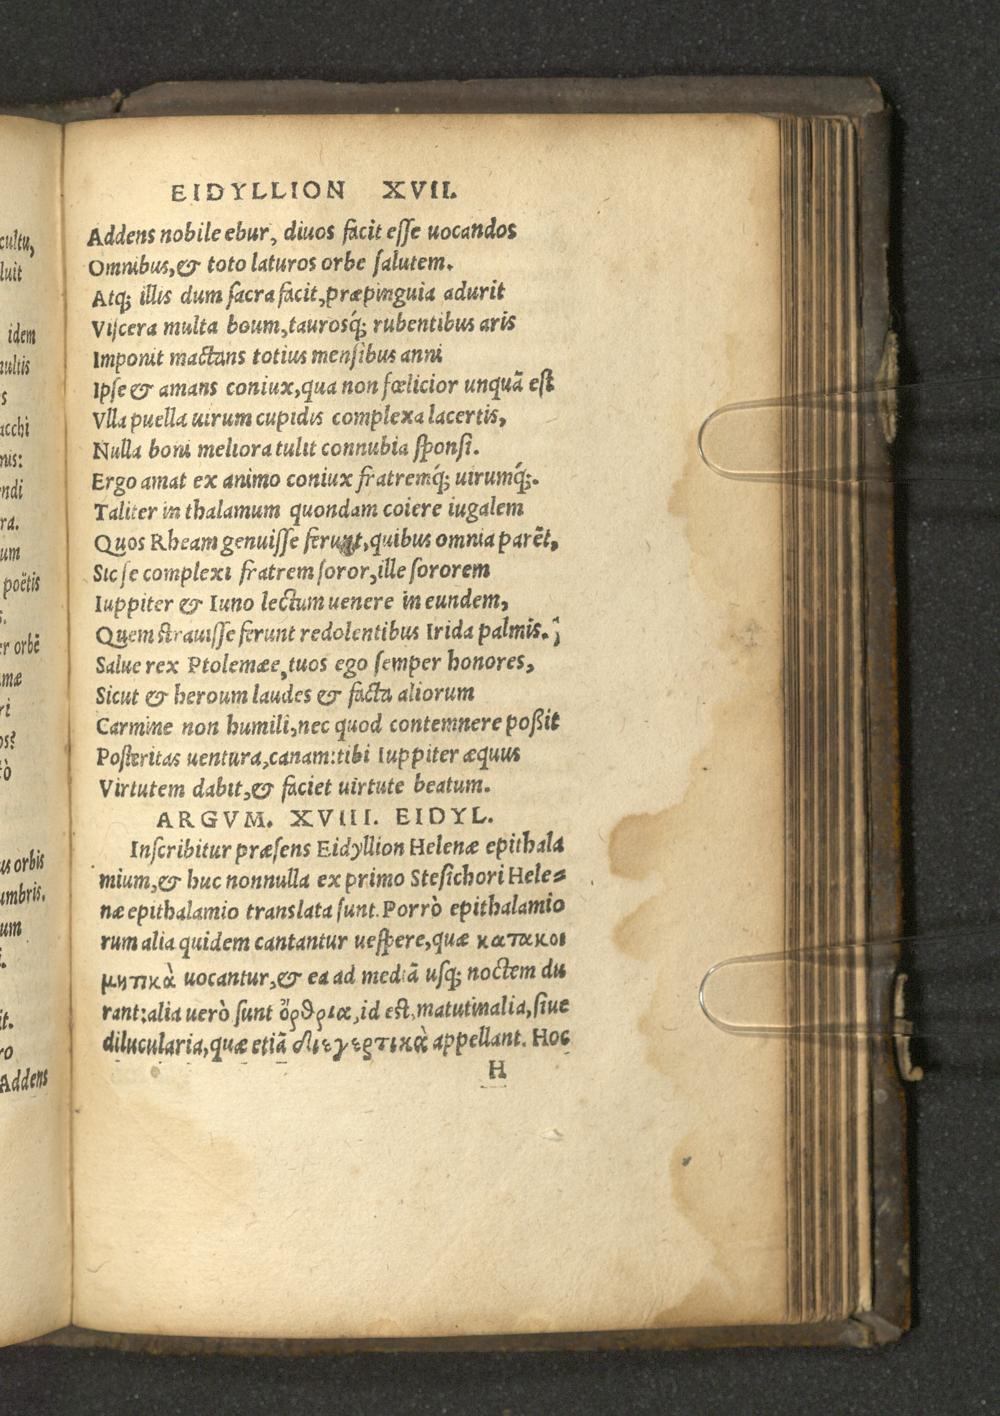 cultu,
luit
idem
nultis
s
acchi
nis:
ndi
ra.
um
poëtis
s.
er orbē
mæ
ri
os?
tò
us orbis
umbris.
um
i.
it.
ro
Addens
EIDYLLION XVII.
Addens nobile ebur, diuos facit esse uocandos
Omnibus,& toto laturos orbe salutem.
Atq; illis dum sacra facit,præpinguia adurit
Viscera multa boum,taurosq́; rubentibus aris
Imponit mactans totius mensibus anni
Ipse & amans coniux,qua non fœlicior unquā est
Vlla puella uirum cupidis complexa lacertis,
Nulla boni meliora tulit connubia sponsi.
Ergo amat ex animo coniux fratremq́; uirumq́;.
Taliter in thalamum quondam coiere iugalem
Quos Rheam genuisse ferunt,quibus omnia parēt,
Sic se complexi fratrem soror,ille sororem
Iuppiter & Iuno lectum uenere in eundem,
Quem strauisse ferunt redolentibus Irida palmis.
Salue rex Ptolemæe,tuos ego semper honores,
Sicut & heroum laudes & facta aliorum
Carmine non humili,nec quod contemnere poßit
Posteritas uentura,canam:tibi Iuppiter æquus
Virtutem dabit,& faciet uirtute beatum.
ARGVM. XVIII. EIDYL.
Inscribitur præsens Eidyllion Helenæ epithala
mium,& huc nonnulla ex primo Stesichori Hele=
næ epithalamio translata sunt.Porrò epithalamio
rum alia quidem cantantur uespere,quæ κατακοι
μητικὰ uocantur,& ea ad mediā usq; noctem du
rant:alia uerò sunt ὄρθρια,id est,matutinalia,siue
dilucularia,quæ etiā διεγερτικὰ appellant. Hoc
H